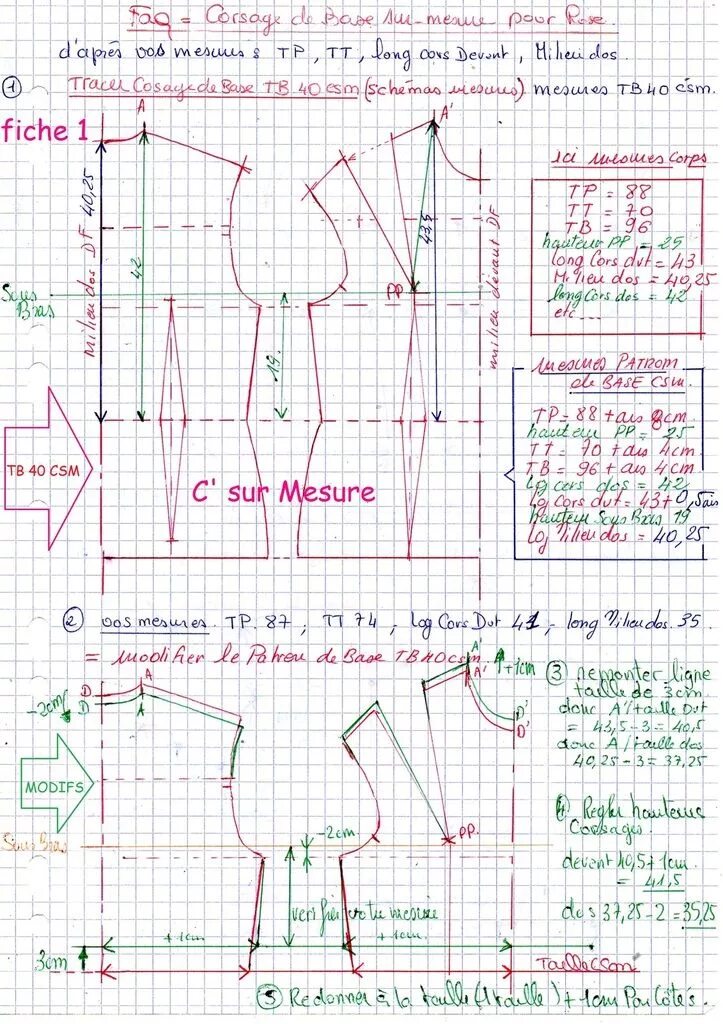 FAQ = Corsage de Base sur-mesure pour Rose.
d'après vos mesures TP, TT, long cors Devant, Milieu dos.
① Tracer Cosage de Base TB 40 csm (schémas mesures) mesures TB 40 csm.
fiche 1
A
A'
ici mesures corps
TP = 88
TT = 70
TB = 96
hauteur PP = 25
long Cors dvt = 43
Milieu dos = 40,25
long Cors dos = 42
etc...
milieu dos DF 40,25
42
43,5
milieu devant DF
PP
Sous Bras
19
mesures PATRON
de BASE CSM.
TP = 88 + ais 8cm
hauteur PP = 25
TT = 70 + ais 4cm
TB = 96 + ais 4cm
Lg cors dos = 42
Lg Cors dvt = 43 + 0,5 ais
hauteur Sous Bras 19
Lg Milieu dos = 40,25
TB 40 CSM
C' sur Mesure
② vos mesures. TP. 87, TT 74, Log Cors Dvt 41, - long Milieu dos. 35
= modifier le Patron de Base TB 40 csm.
-2cm
D
D
A
A
A'
A'
+1cm
D'
D'
③ remonter ligne
taille de 3cm.
donc A'/taille Dvt
= 43,5 - 3 = 40,5
donc A/taille dos
40,25 - 3 = 37,25
MODIFS
Sous Bras
-2cm
PP.
④ Régler hauteurs
Corsages.
devant 40,5 + 1cm
= 41,5
dos 37,25 - 2 = 35,25
verifier votre mesure
+1cm
+1cm
3cm
Taille CSM
⑤ Redonner à la taille (1 taille) + 1cm Par Côtés.